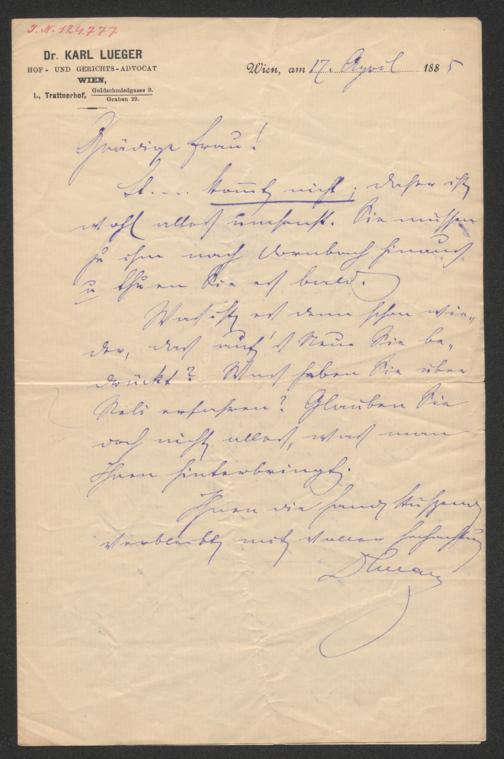 J. N. 124.777
Dr. KARL LUEGER
HOF- UND GERICHTS-ADVOCAT
WIEN,
I., Trattnerhof, Goldschmiedgasse 9.
Graben 29.
Wien, am 17. April 1885
Gnädige Frau!
kommt nicht; daher ist
wohl alles umsonst. Sie müssen
zu ihm nach Dornbach hinaus
u thuen Sie es bald.
Was ist es denn schon wie-
der, das auf's Neue Sie be-
drückt? Was haben Sie über
erfahren? Glauben Sie
doch nicht alles, was man
Ihnen hinterbringt.
Ihnen die Hand küssend
verbleibt mit voller Hochachtung
DrLueger